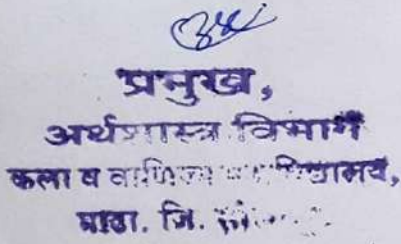 प्रमुख,
अर्थशास्त्र विभाग
कला व वाणिज्य महाविद्यालय,
माढा. जि.